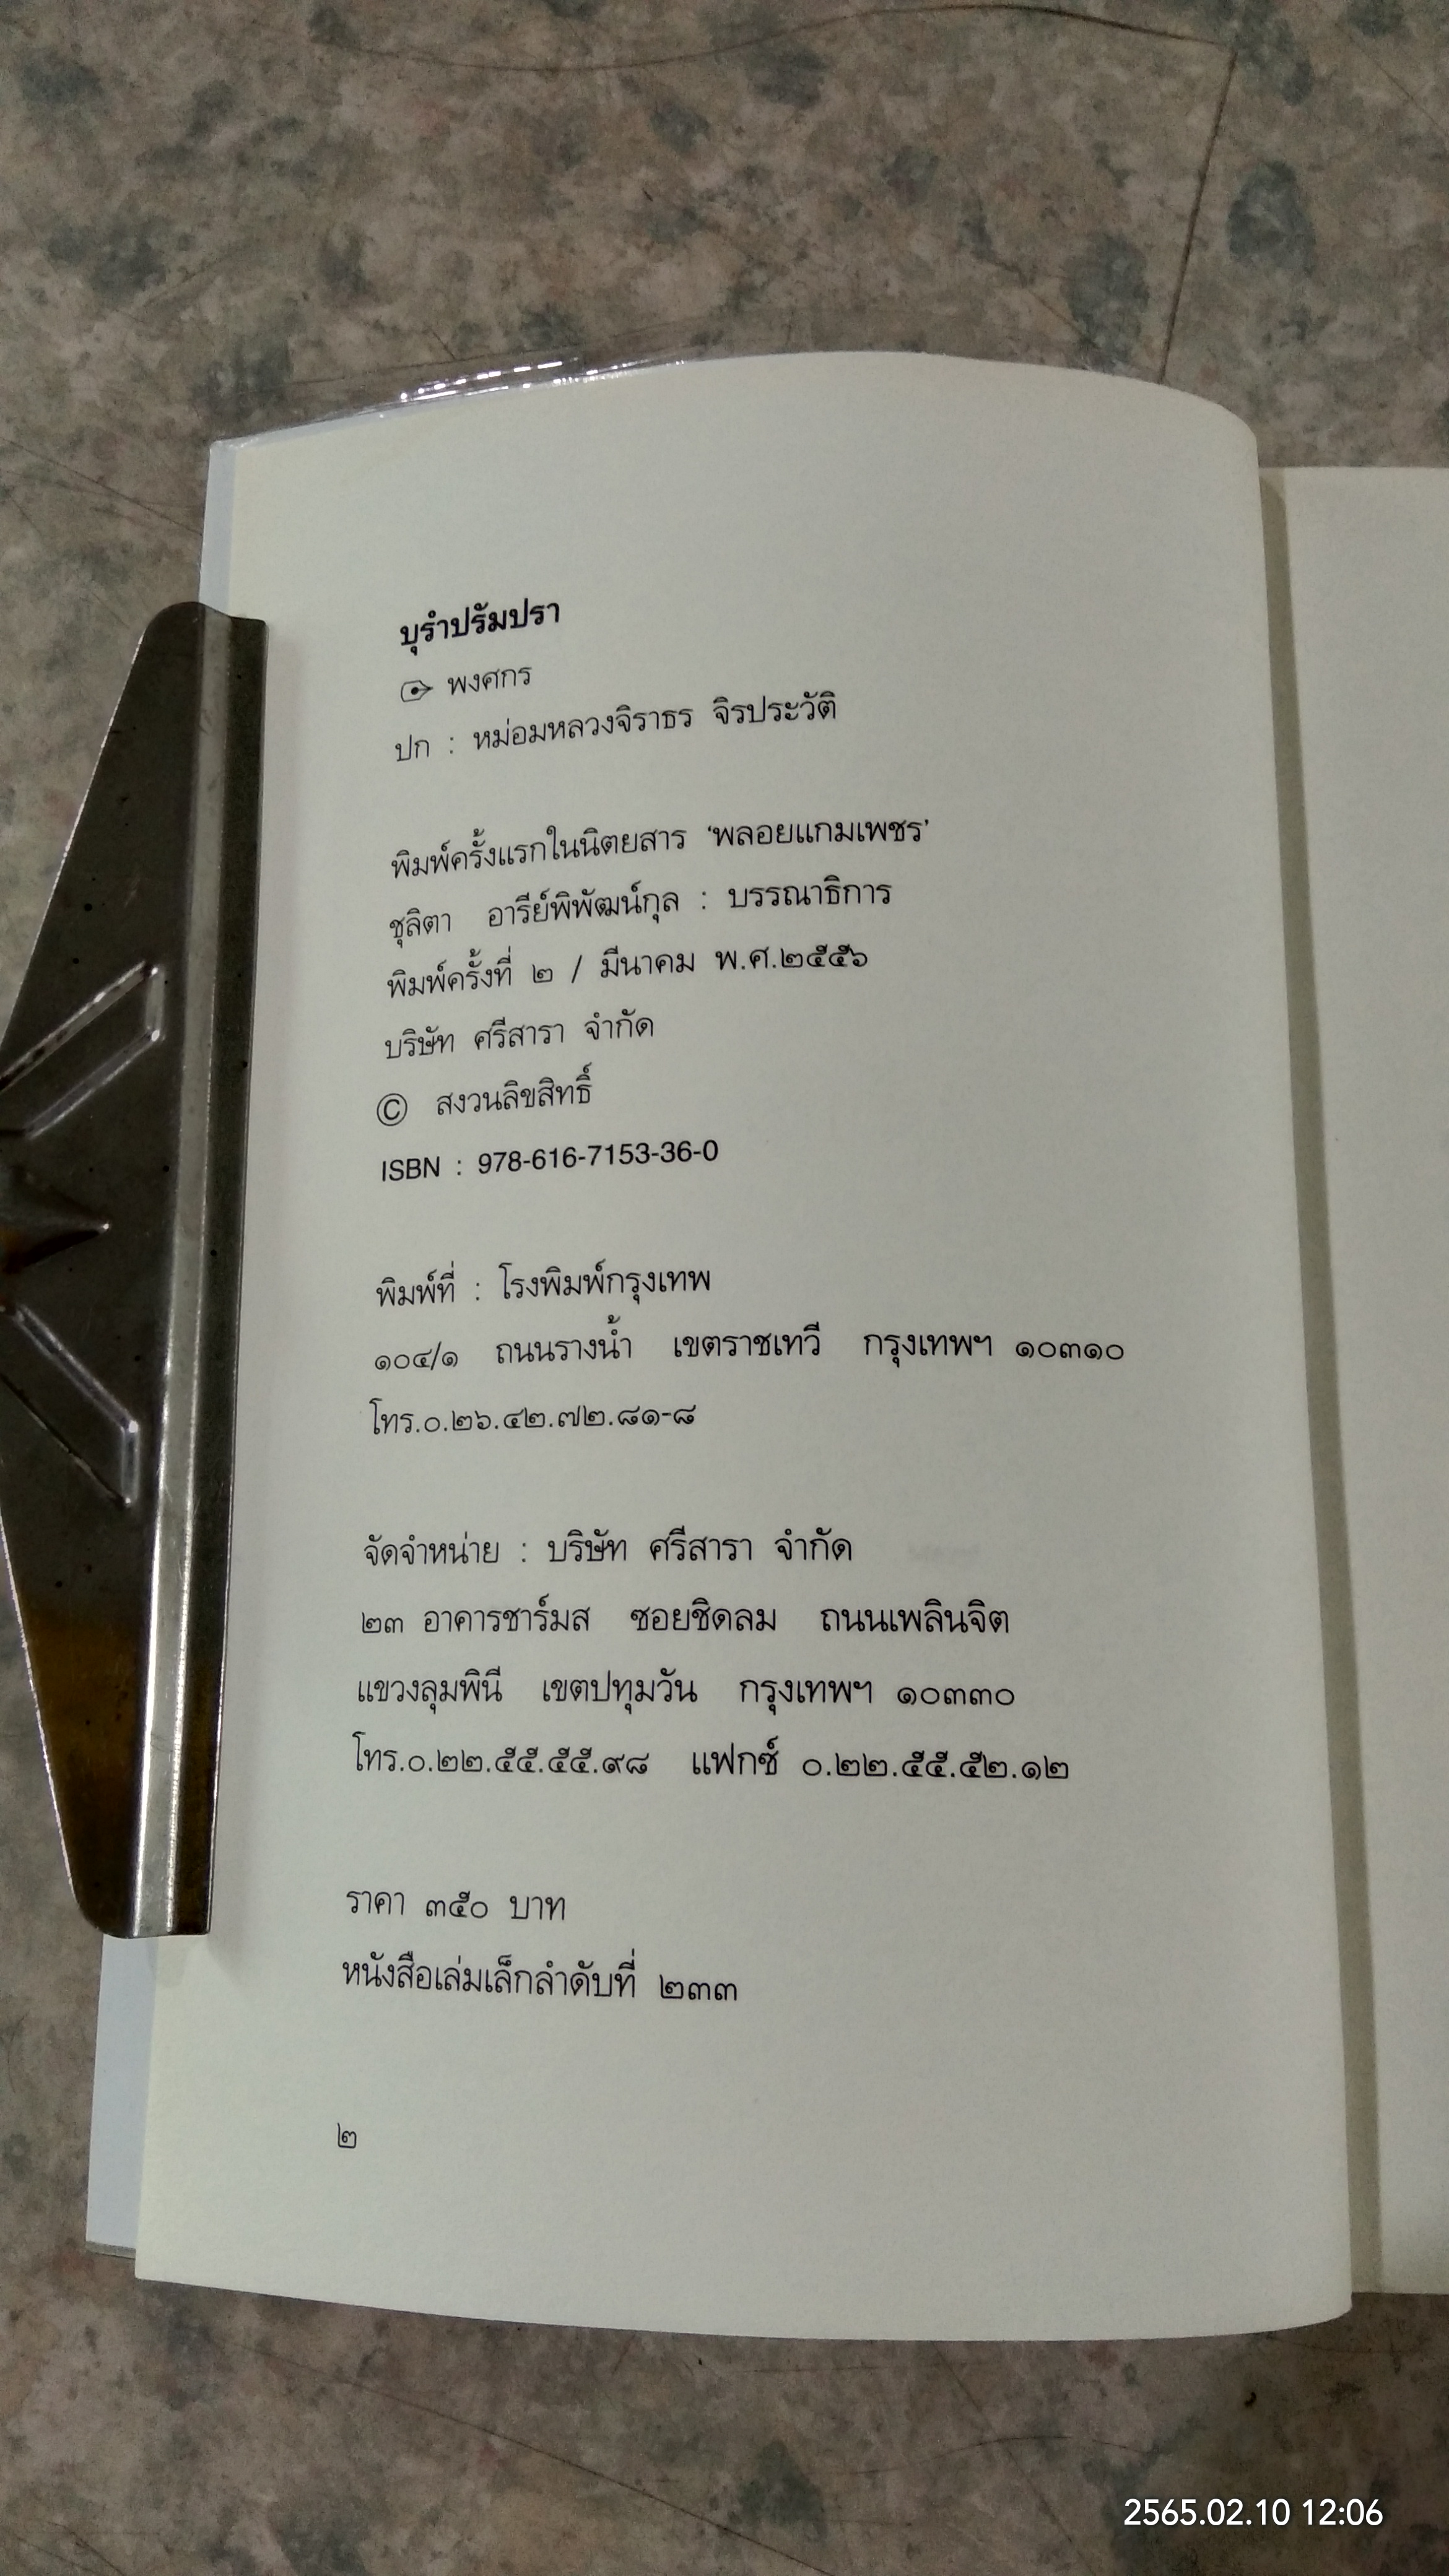 บุรำปรัมปรา
พงศกร
ปก : หม่อมหลวงจิราธร จิรประวัติ
พิมพ์ครั้งแรกในนิตยสาร ‘พลอยแกมเพชร’
ชุลิตา อารีย์พิพัฒน์กุล : บรรณาธิการ
พิมพ์ครั้งที่ ๒ / มีนาคม พ.ศ.๒๕๕๖
บริษัท ศรีสารา จำกัด
© สงวนลิขสิทธิ์
ISBN : 978-616-7153-36-0
พิมพ์ที่ : โรงพิมพ์กรุงเทพ
๑๐๔/๑ ถนนรางน้ำ เขตราชเทวี กรุงเทพฯ ๑๐๓๑๐
โทร.๐.๒๖.๔๒.๗๒.๘๑-๘
จัดจำหน่าย : บริษัท ศรีสารา จำกัด
๒๓ อาคารชาร์มส ซอยชิดลม ถนนเพลินจิต
แขวงลุมพินี เขตปทุมวัน กรุงเทพฯ ๑๐๓๓๐
โทร.๐.๒๒.๕๕.๕๕.๙๘ แฟกซ์ ๐.๒๒.๕๕.๕๒.๑๒
ราคา ๓๕๐ บาท
หนังสือเล่มเล็กลำดับที่ ๒๓๓
๒
2565.02.10 12:06